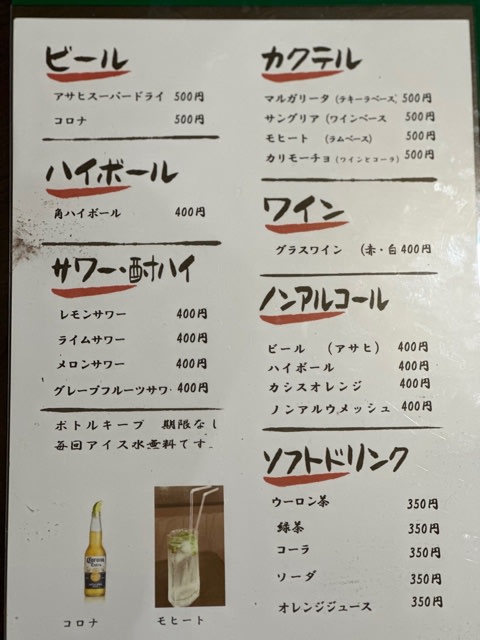 ビール
アサヒスーパードライ 500円
コロナ 500円
ハイボール
角ハイボール 400円
サワー・酎ハイ
レモンサワー 400円
ライムサワー 400円
メロンサワー 400円
グレープフルーツサワ 400円
ボトルキープ 期限なし
毎回アイス水無料です
コロナ
モヒート
カクテル
マルガリータ (テキーラベース) 500円
サングリア (ワインベース 500円
モヒート (ラムベース) 500円
カリモーチョ (ワインとコーラ) 500円
ワイン
グラスワイン (赤・白 400円
ノンアルコール
ビール (アサヒ) 400円
ハイボール 400円
カシスオレンジ 400円
ノンアルウメッシュ 400円
ソフトドリンク
ウーロン茶 350円
緑茶 350円
コーラ 350円
ソーダ 350円
オレンジジュース 350円